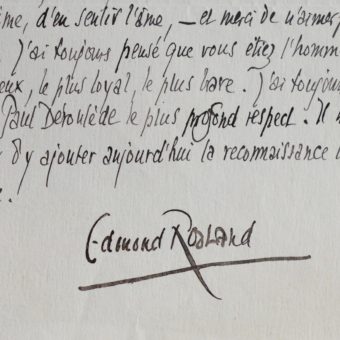 me, d'en sentir l'âme, — et merci de n'aimer
J'ai toujours pensé que vous étiez l'homm
eux, le plus loyal, le plus brave. J'ai toujou
Paul Déroulède le plus profond respect. Il
d'y ajouter aujourd'hui la reconnaissance
Edmond Rostand